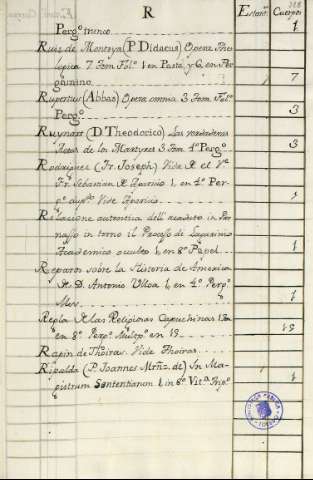 R
Estant. Cuerpos
Pergº trunco 1
Ruiz de Montoya (P. Didacus) Opera Theo
logica 7 Tom. Folº 1 en Pasta, y 6, en Per
gamino 7
Rupertus (Abbas) Opera omnia 3 Tom. Folº
Pergº 3
Ruynart (D. Theodorico) Las verdaderas
Actas de los Martyres 3 Tom. 4º Pergº 3
Rodriguez (Fr. Joseph) Vide
Fr. Sebastian 1, en 4º Per
Vide 1
Relacione autentica dell acaduto in Par
nasso in torno il Processo di
Academico occulto 1, en 8º Papel 1
Reparos sobre la Historia de America
D. Antonio Ulloa 1, en 4º Pergº
Mss. 1
Regla de las Religiosas Capuchinas
en 8º Pergº en 19 19
Rapin de Thoiras. Vide Thoiras
Ripalda (P. Joannes Mrñz. de) In Ma
gistrum Sententiarum 1 in 8º Vitª 1